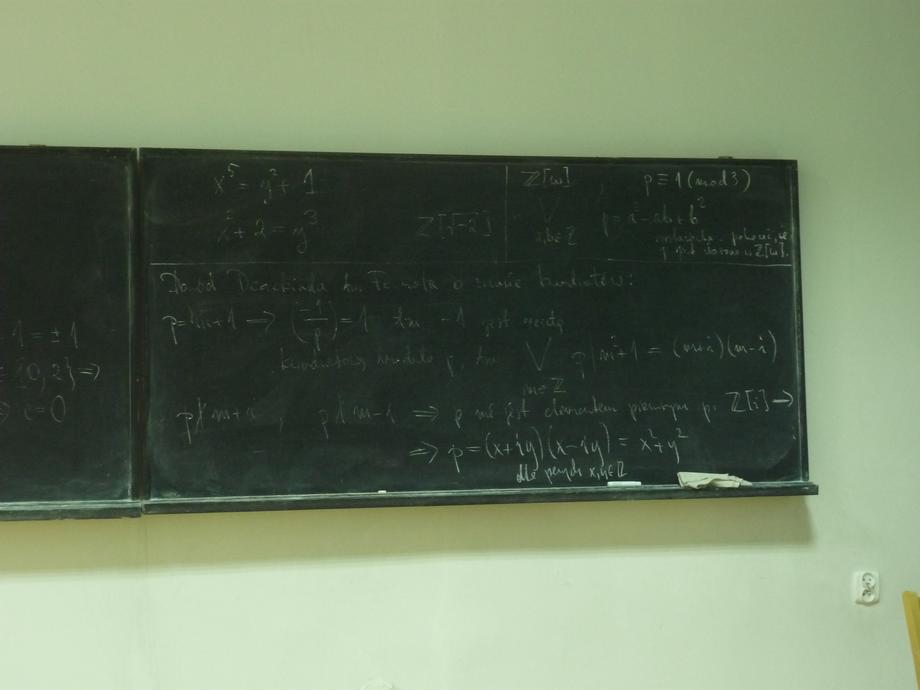 1 = ± 1
{0, 2} ⇒
⇒ c = 0
x⁵ = y² + 1
x² + 2 = y³
ℤ[√-2]
ℤ[ω], p ≡ 1 (mod 3)
⋁ p = a² - ab + b²
a,b∈ℤ
ℤ[ω].
Dowód Dedekinda tw. Fermata o sumie kwadratów:
p = 4n+1 ⇒ (-1/p) = 1 tzn -1 jest resztą
kwadratową modulo p, tzn ⋁ p | m²+1 = (m+i)(m-i)
m∈ℤ
p∤m+i, p∤m-i ⇒ p nie jest elementem pierwszym p. ℤ[i] ⇒
⇒ p = (x+iy)(x-iy) = x²+y²
dla pewnych x,y∈ℤ